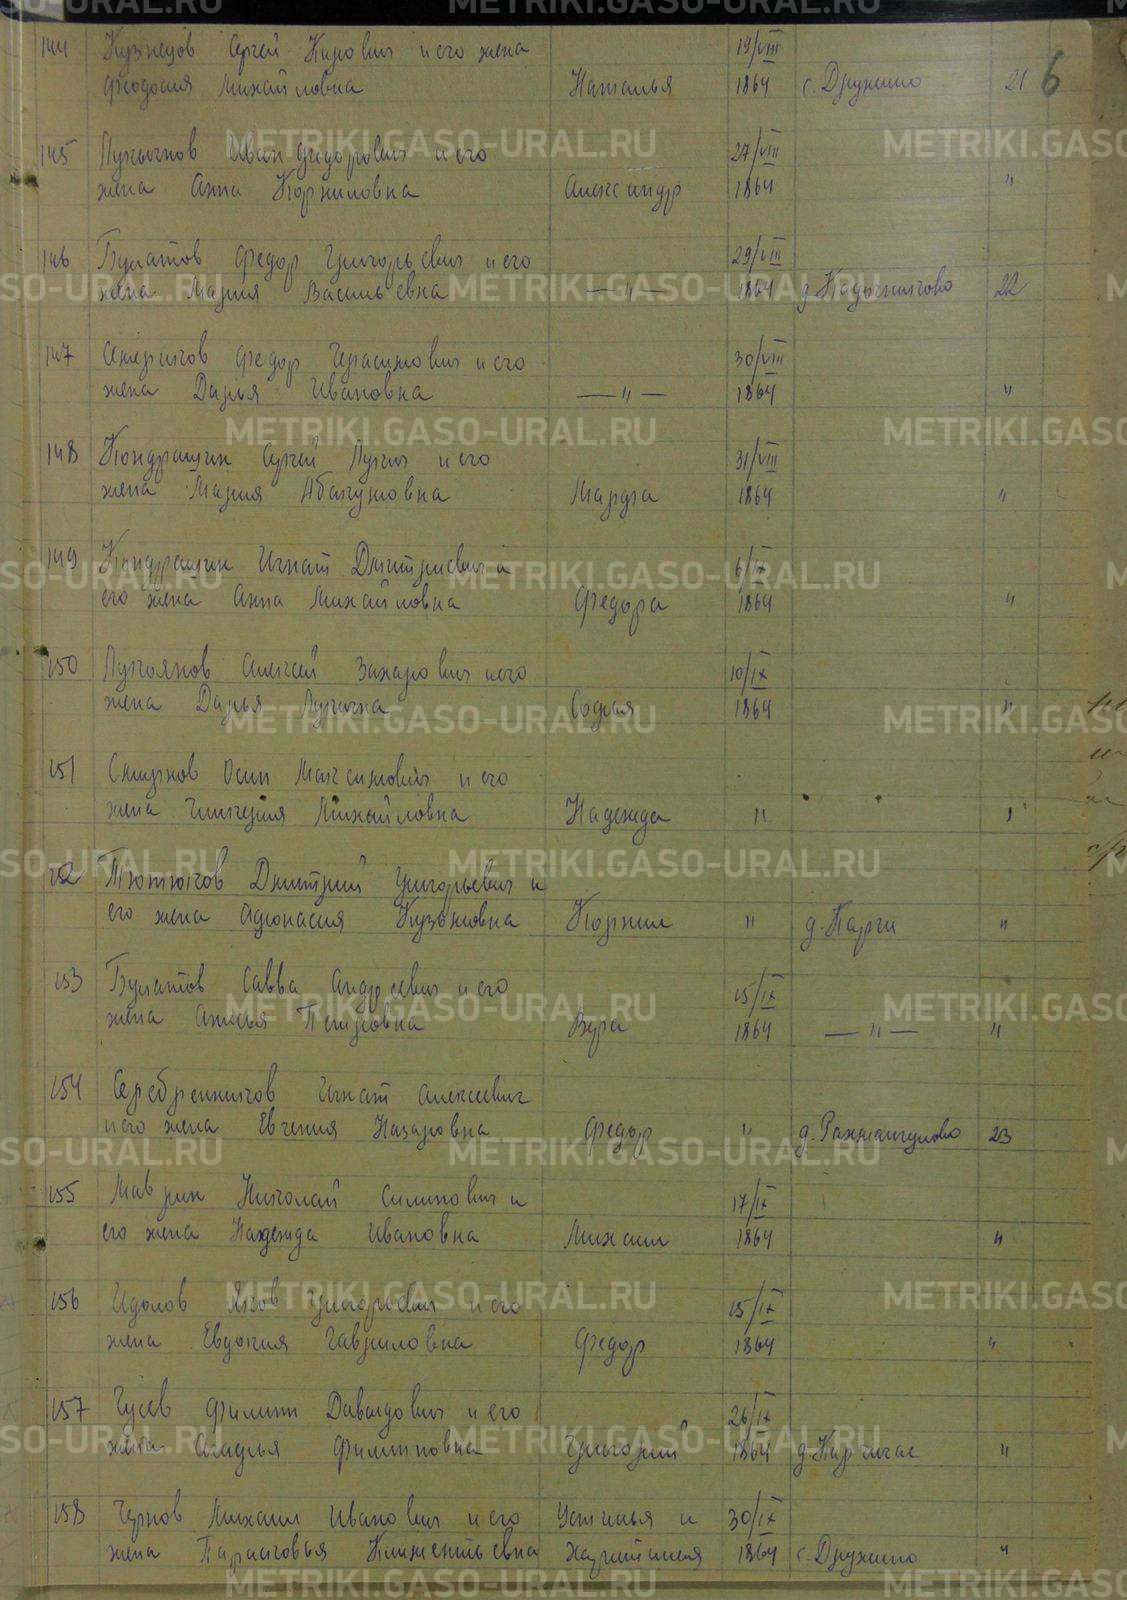 METRIKI.GASO-URAL.RU
144 Кузнецов Сергей Кирович и его жена 19/VIII
Феодосия Михайловна Наталья 1864 с. Дружино 21 6
145 Лукьянов Иван Федорович и его 27/VIII
жена Анна Корниловна Александр 1864 "
146 Булатов Федор Григорьевич и его 29/VIII
жена Мария Васильевна — " — 1864 22
147 Федор Герасимович и его 30/VIII
жена Дарья Ивановна — " — 1864 "
148 Кондрашин Сергей Лукич и его 31/VIII
жена Мария Абакумовна Марфа 1864 "
149 Кондрашин Игнат Дмитриевич и 6/IX
его жена Анна Михайловна Федора 1864 "
150 Лукоянов Алексей Захарович и его 10/IX
жена Дарья Лукична Софья 1864 "
151 Смирнов Осип Максимович и его
жена Гликерия Михайловна Надежда " "
152 Тютюков Дмитрий Григорьевич и
его жена Афонасия Кузьмовна Корнил " д. Парги "
153 Булатов Савва Андреевич и его 15/IX
жена Анисья Петровна Вера 1864 — " — "
154 Серебренников Игнат Алексеевич
и его жена Евгения Назаровна Федор " д. Рахмангулово 23
155 Маврин Николай Силинович и 17/IX
его жена Надежда Ивановна Михаил 1864 "
156 Идолов Яков Григорьевич и его 15/IX
жена Евдокия Гавриловна Федор 1864 "
157 Гусев Филипп Давыдович и его 26/IX
жена Агафья Филипповна Григорий 1864 д. Киргишан "
158 Чернов Михаил Иванович и его Устинья и 30/IX
жена Парасковья Климентьевна Харитинья 1864 с. Дружино "